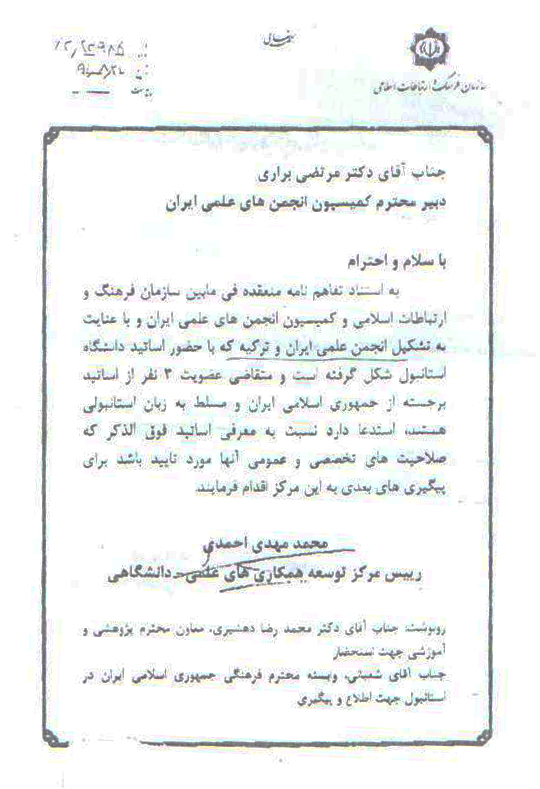 بسمه تعالی
سازمان فرهنگ و ارتباطات اسلامی
جناب آقای دکتر مرتضی براری
دبیر محترم کمیسیون انجمن های علمی ایران
با سلام و احترام
به استناد تفاهم نامه منعقده فی مابین سازمان فرهنگ و
ارتباطات اسلامی و کمیسیون انجمن های علمی ایران و با عنایت
به تشکیل انجمن علمی ایران و ترکیه که با حضور اساتید دانشگاه
استانبول شکل گرفته است و متقاضی عضویت ۳ نفر از اساتید
برجسته از جمهوری اسلامی ایران و مسلط به زبان استانبولی
هستند، استدعا دارد نسبت به معرفی اساتید فوق الذکر که
صلاحیت های تخصصی و عمومی آنها مورد تایید باشد برای
پیگیری های بعدی به این مرکز اقدام فرمایند.
محمد مهدی احمدی
رییس مرکز توسعه همکاری های علمی - دانشگاهی
رونوشت: جناب آقای دکتر محمد رضا دهشیری، معاون محترم پژوهشی و
آموزشی جهت استحضار
جناب آقای شعبانی، وابسته محترم فرهنگی جمهوری اسلامی ایران در
استانبول جهت اطلاع و پیگیری